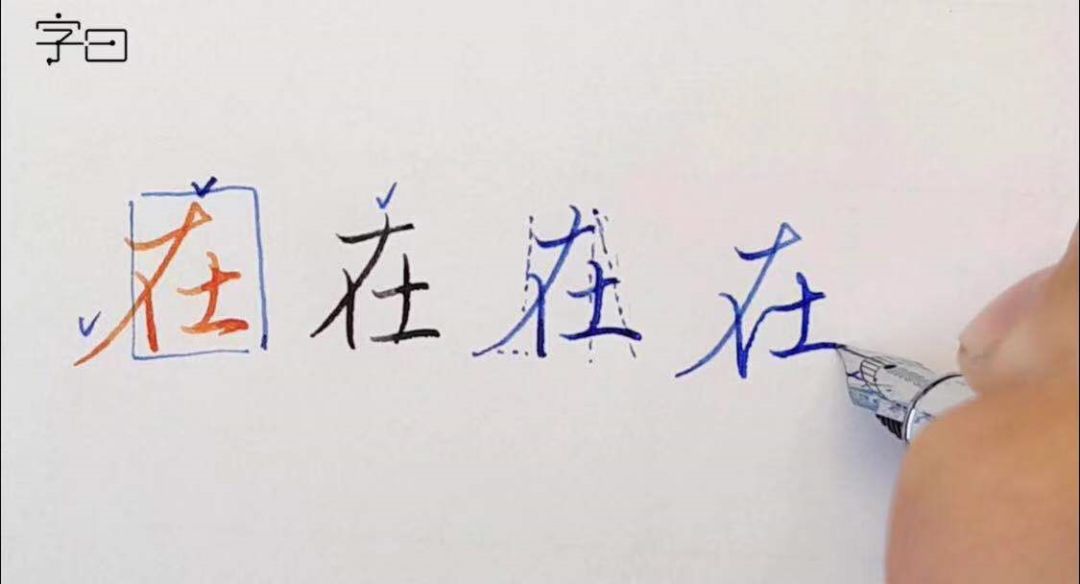 字曰
在 在 在 在